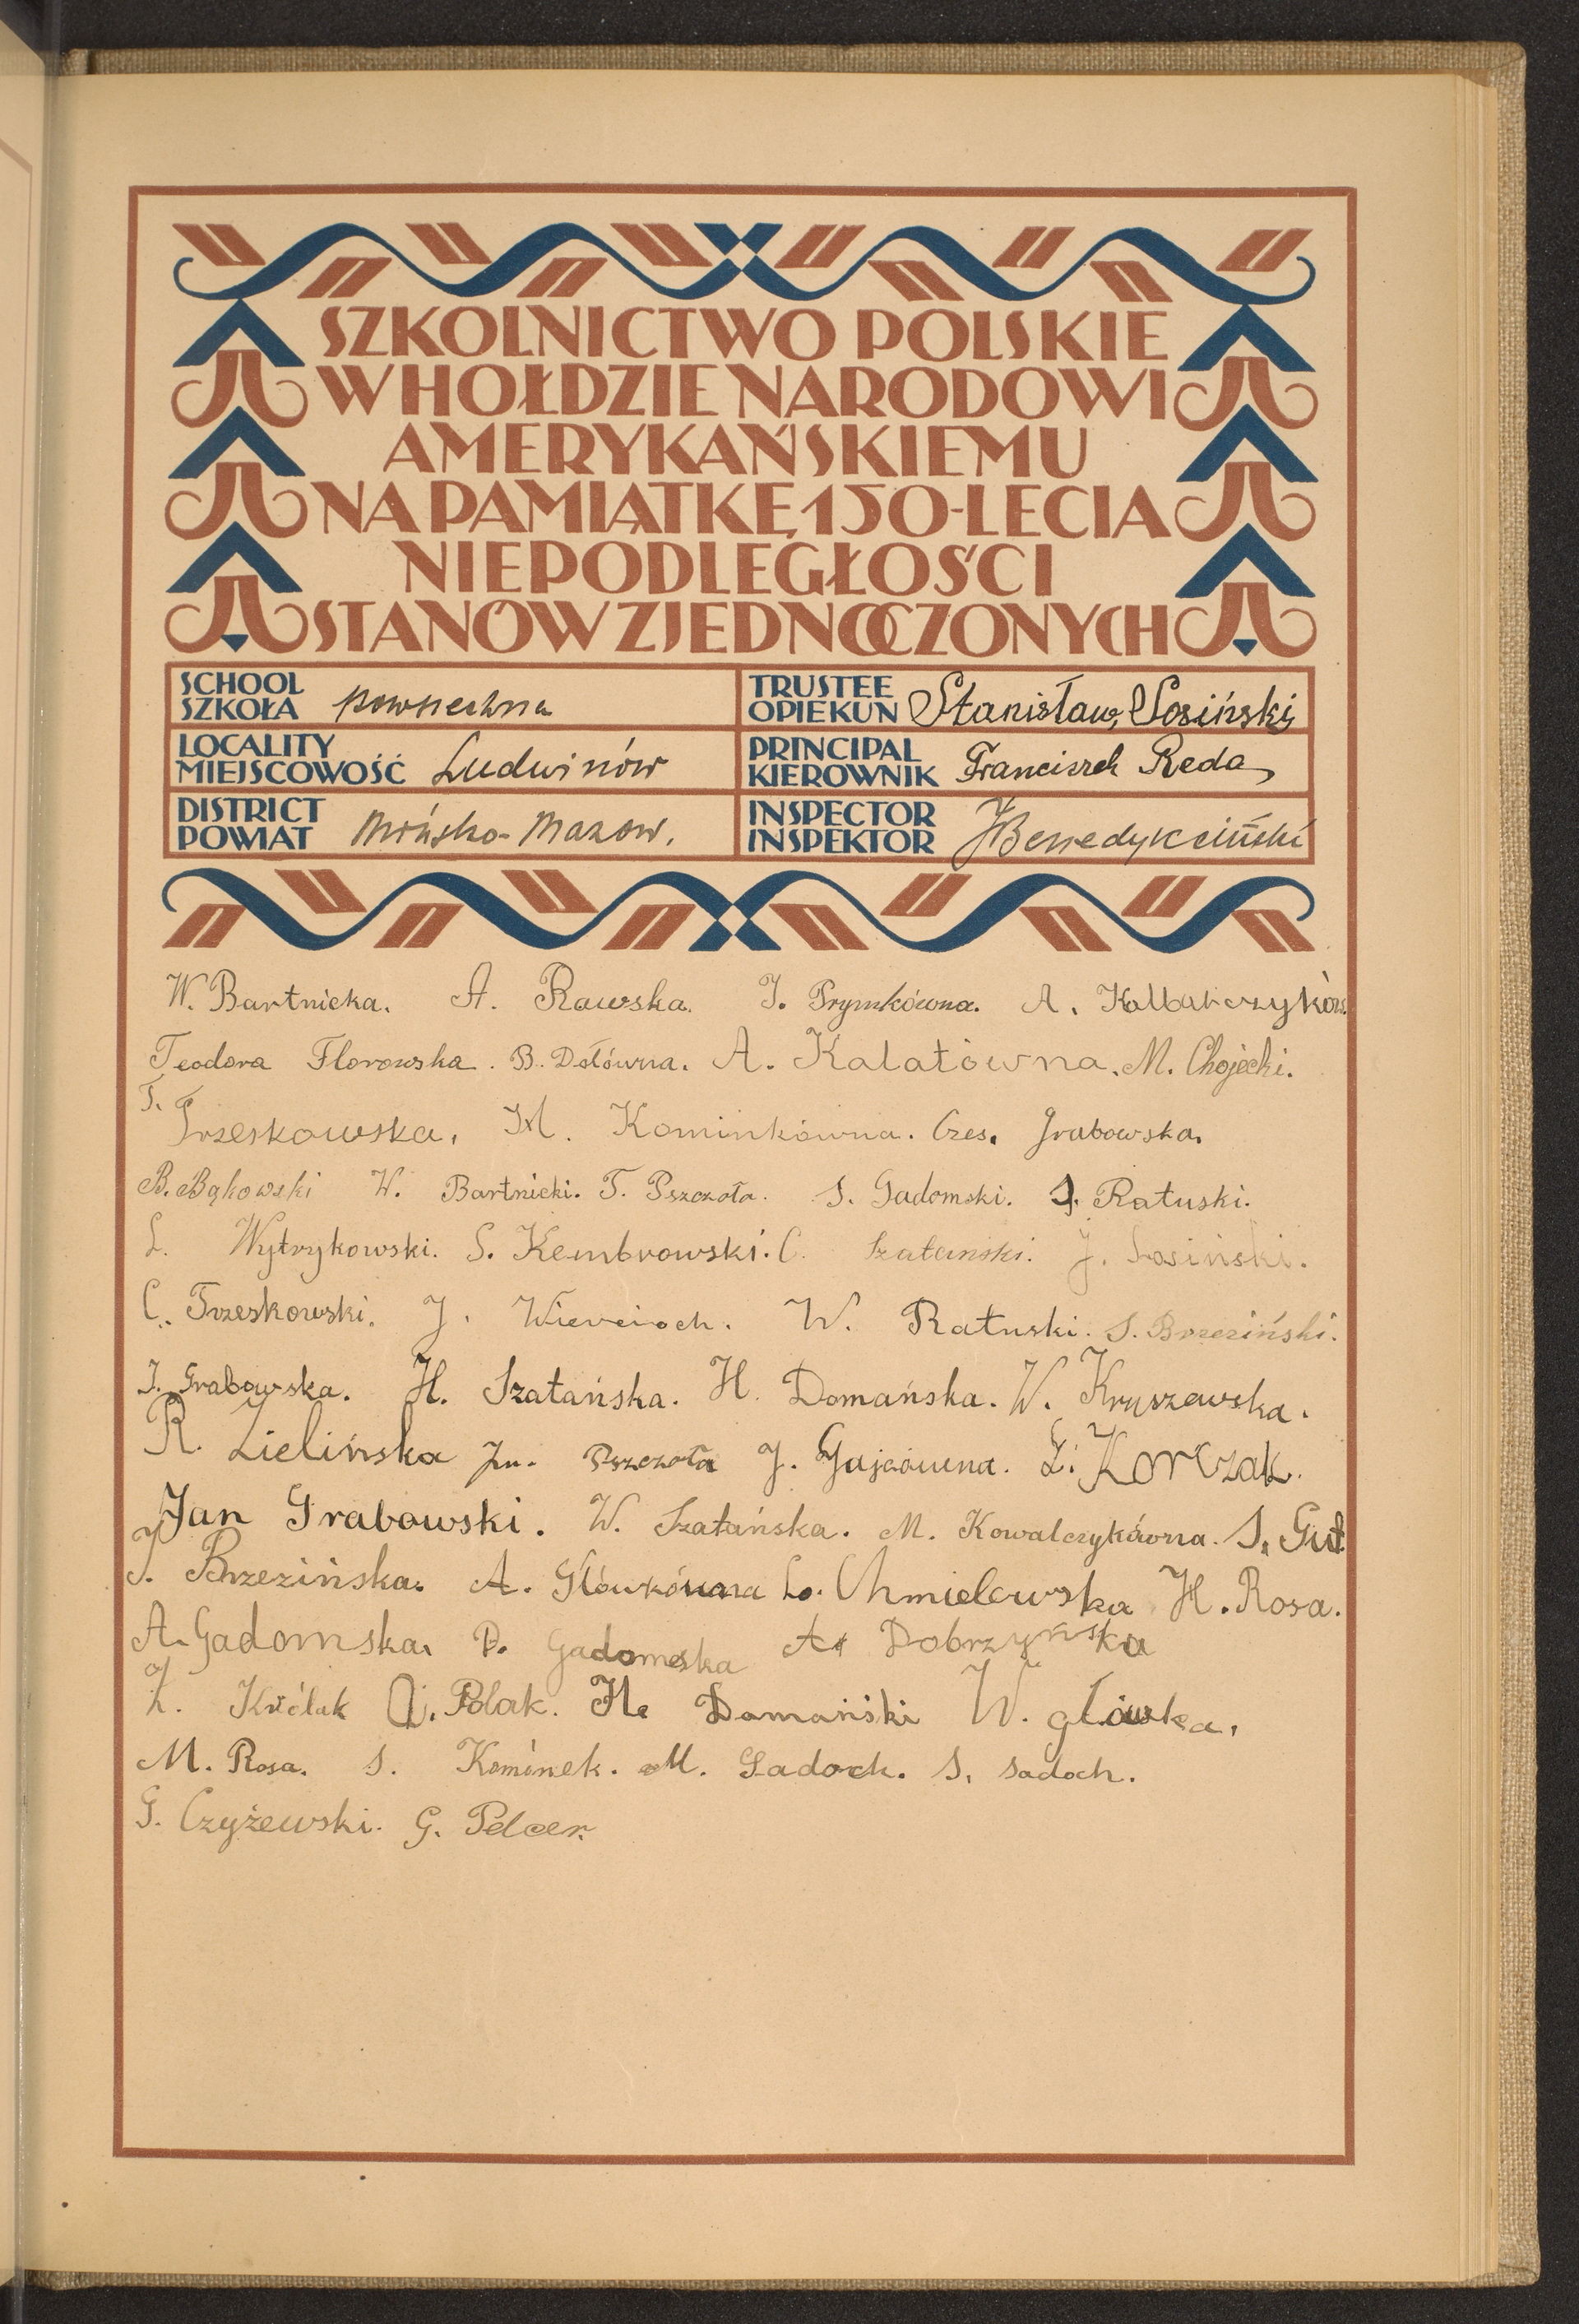 SZKOLNICTWO POLSKIE
W HOŁDZIE NARODOWI
AMERYKAŃSKIEMU
NA PAMIĄTKĘ 150-LECIA
NIEPODLEGŁOŚCI
STANÓW ZJEDNOCZONYCH
SCHOOL SZKOŁA powszechna
TRUSTEE OPIEKUN Stanisław Sosiński
LOCALITY MIEJSCOWOŚĆ Ludwinów
PRINCIPAL KIEROWNIK Franciszek Reda
DISTRICT POWIAT Mińsko-Mazow.
INSPECTOR INSPEKTOR JBenedykciński
W. Bartnicka. A. Rawska. J. Prymkówna. A.
Teodora Florowska. B. Dołówna. A. Kalatówna. M. Chojecki.
T. Trzeskowska. M. Kominkówna. Czes. Grabowska.
B. Bąkowski W. Bartnicki. T. Pszczoła. S. Gadomski. S. Ratuski.
L. Wytrykowski. S. Kembrowski. C. Szatanski. J. Sosiński.
C. Trzeskowski. J. W. Ratuski. S. Brzeziński.
J. Grabowska. H. Szatańska. H. Domańska. W. Kruszewska.
R. Zielińska Jn. Pszczoła J. Gajcówna. L. Korczak.
Jan Grabowski. W. Szatańska. M. Kowalczykówna. S. Gut
J. Brzezińska. A. Główkówna Lo. Chmielewska H. Rosa.
A. Gadomska. D. Gadomska A. Dobrzyńska
Z. Królak J. Polak. H. Domański W. główka.
M. Rosa. S. Kominek. M. Sadoch. S. sadoch.
G. Czyżewski. G. Pelcer.